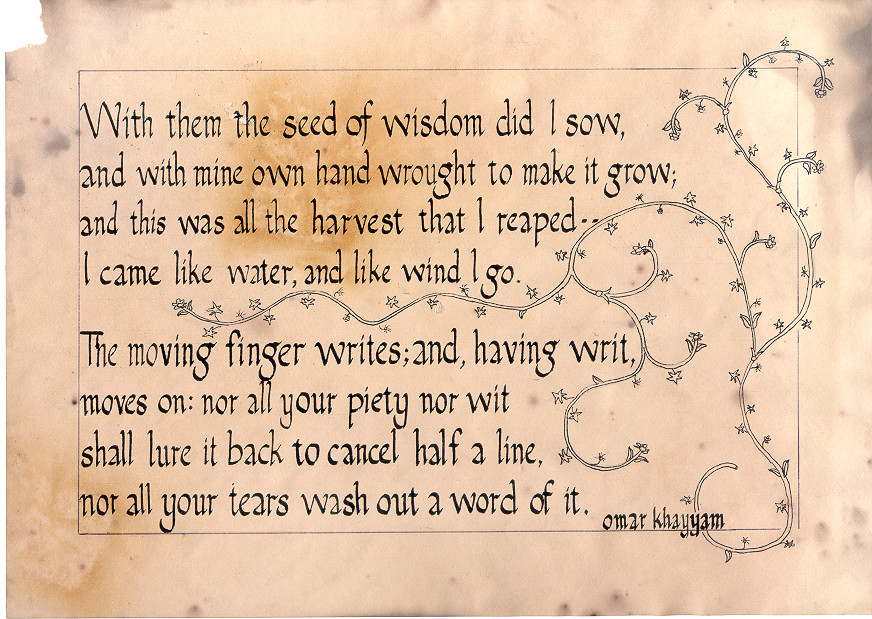 With them the seed of wisdom did I sow,
and with mine own hand wrought to make it grow;
and this was all the harvest that I reaped--
I came like water, and like wind I go.
The moving finger writes; and, having writ,
moves on: nor all your piety nor wit
shall lure it back to cancel half a line,
nor all your tears wash out a word of it.
omar khayyam